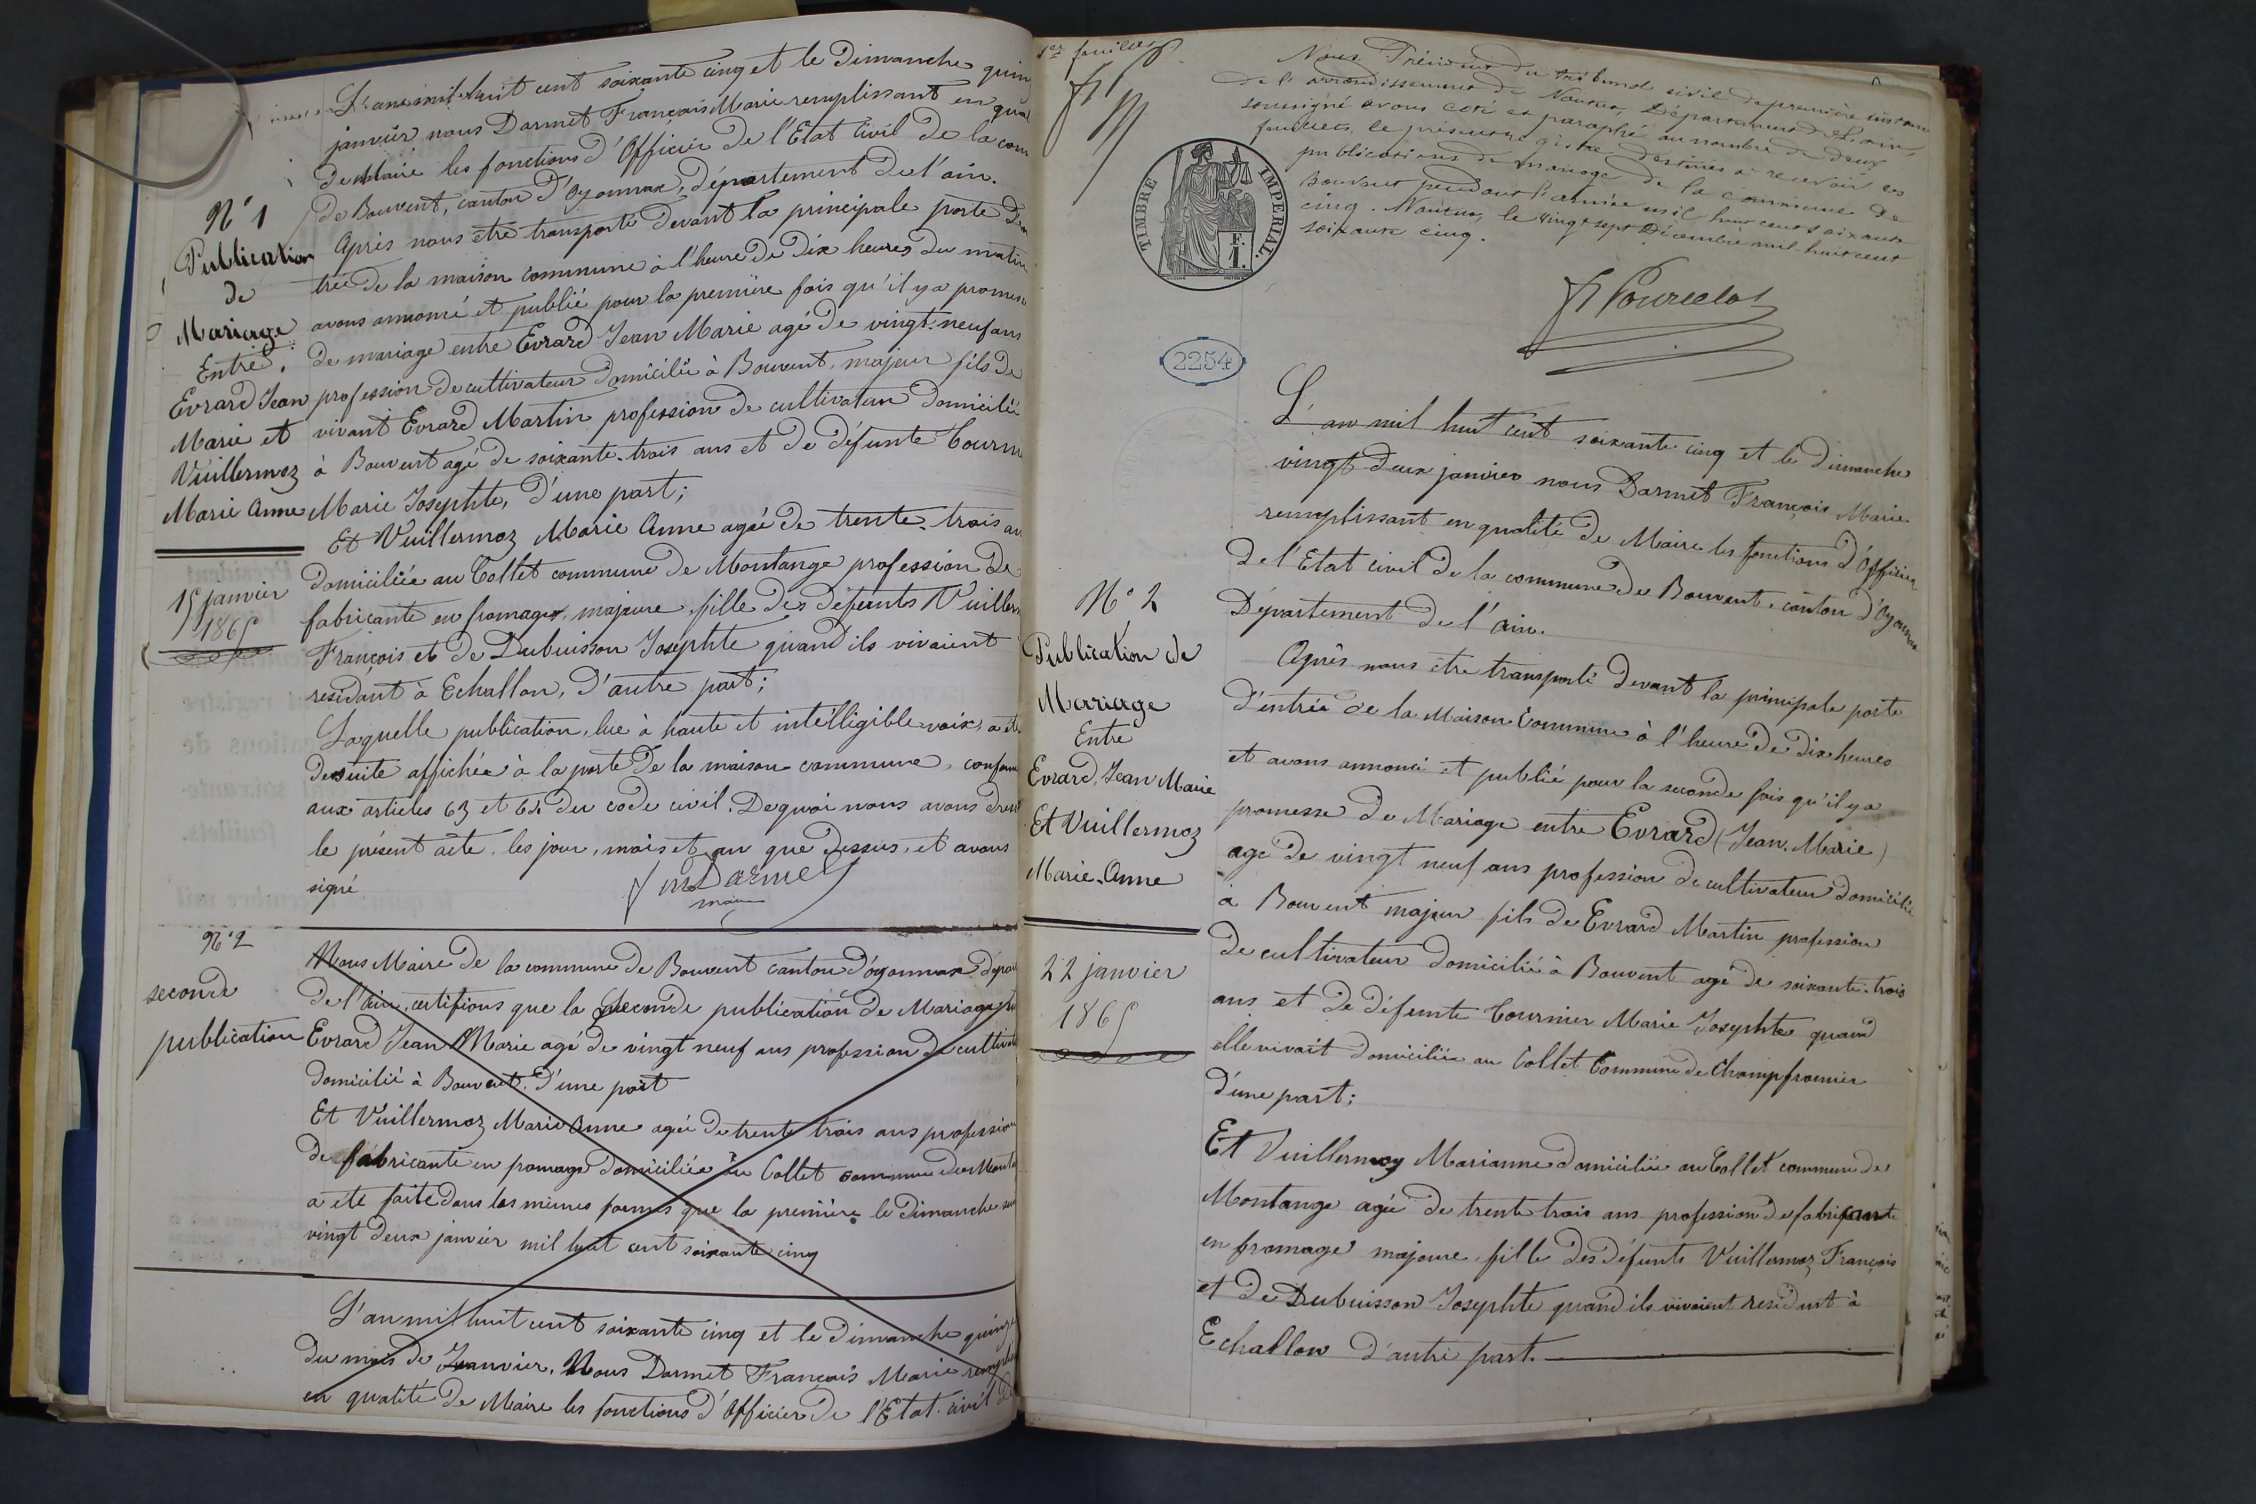 L'an mil huit cent soixante cinq et le Dimanche quin
janvier nous Darmet François Marie remplissant en qual
de Maire les fonctions d'Officier de l'Etat Civil de la com
de Bouvent, canton d'Oyonnax, département de l'ain.
Après nous être transporté devant la principale porte d'en
trée de la maison commune à l'heure de dix heures du matin
avons annoncé et publié pour la première fois qu'il y a promesse
de mariage entre Evrard Jean Marie agé de vingt-neuf ans
profession de cultivateur domicilié à Bouvent, majeur fils de
vivant Evrard Martin profession de cultivateur domicilié
à Bouvent agé de soixante-trois ans et de défunte Tourni
Marie Josephte, d'une part;
Et Vuillermoz Marie Anne agée de trente-trois an
domiciliée au Collet commune de Montange profession de
fabricante en fromages, majeure fille des défunts Vuiller
François et de Dubuisson Josephte quand ils vivaient
residant à Echallon, d'autre part;
Laquelle publication, lue à haute et intelligible voix, a été
de suite affichée à la porte de la maison commune, conform
aux articles 63 et 64 du code civil. De quoi nous avons dressé
le présent acte, les jour, mois et an que dessus, et avons
signé
fm Darmet
maire
N° 1
Publication
de
Mariage
Entre
Evrard Jean
Marie et
Vuillermoz
Marie Anne
15 janvier
1865
N° 2
seconde
publication
Nous Maire de la commune de Bouvent canton d'oyonnax dépar
de l'ain, certifions que la seconde publication de Mariage
Evrard Jean Marie agé de vingt neuf ans profession de cultivat
domicilié à Bouvent. D'une part
Et Vuillermoz Marie Anne agée de trente trois ans profession
de fabricante en fromage domiciliée au Collet commune de Monta
a été faite dans les mêmes formes que la première le Dimanche
vingt deux janvier mil huit cent soixante cinq
L'an mil huit cent soixante cinq et le Dimanche quinze
du mois de Janvier, Nous Darmet François Marie rempli
en qualité de Maire les fonctions d'Officier de l'Etat-civil de
1er feuillet
Nous Président du tribunal civil de première instance
de l'arrondissement de Nantua, Département de l'ain,
soussigné avons coté et paraphé au nombre de deux
feuillets, le présent registre destiné à recevoir les
publications de mariage de la commune de
Bouvent pendant l'année mil huit cent soixante
cinq. Nantua, le vingt sept Décembre mil huit cent
soixante cinq.
TIMBRE IMPERIAL.
F.
1.
2254
L'an mil huit cent soixante cinq et le dimanche
vingt deux janvier nous Darmet François Marie
remplissant en qualité de Maire les fonctions d'Officier
de l'Etat civil de la commune de Bouvent, canton d'Oyonnax
Département de l'ain.
Après nous être transporté devant la principale porte
d'entrée de la Maison Commune à l'heure de dix heures
et avons annoncé et publié pour la seconde fois qu'il y a
promesse de Mariage entre Evrard (Jean. Marie)
age de vingt neuf ans profession de cultivateur domicilié
à Bouvent majeur fils de Evrard Martin profession
de cultivateur domicilié à Bouvent agé de soixante-trois
ans et de défunte Tournier Marie Josephte quand
elle vivait domiciliée au Collet Commune de Champfromier
d'une part;
Et Vuillermoz Marianne domiciliée au Collet commune de
Montange agée de trente trois ans profession de fabricante
en fromage majeure fille des défunts Vuillermoz François
et de Dubuisson Josephte quand ils vivaient residant à
Echallon d'autre part.
N° 2
Publication de
Mariage
Entre
Evrard, Jean Marie
Et Vuillermoz
Marie-Anne
22 janvier
1865